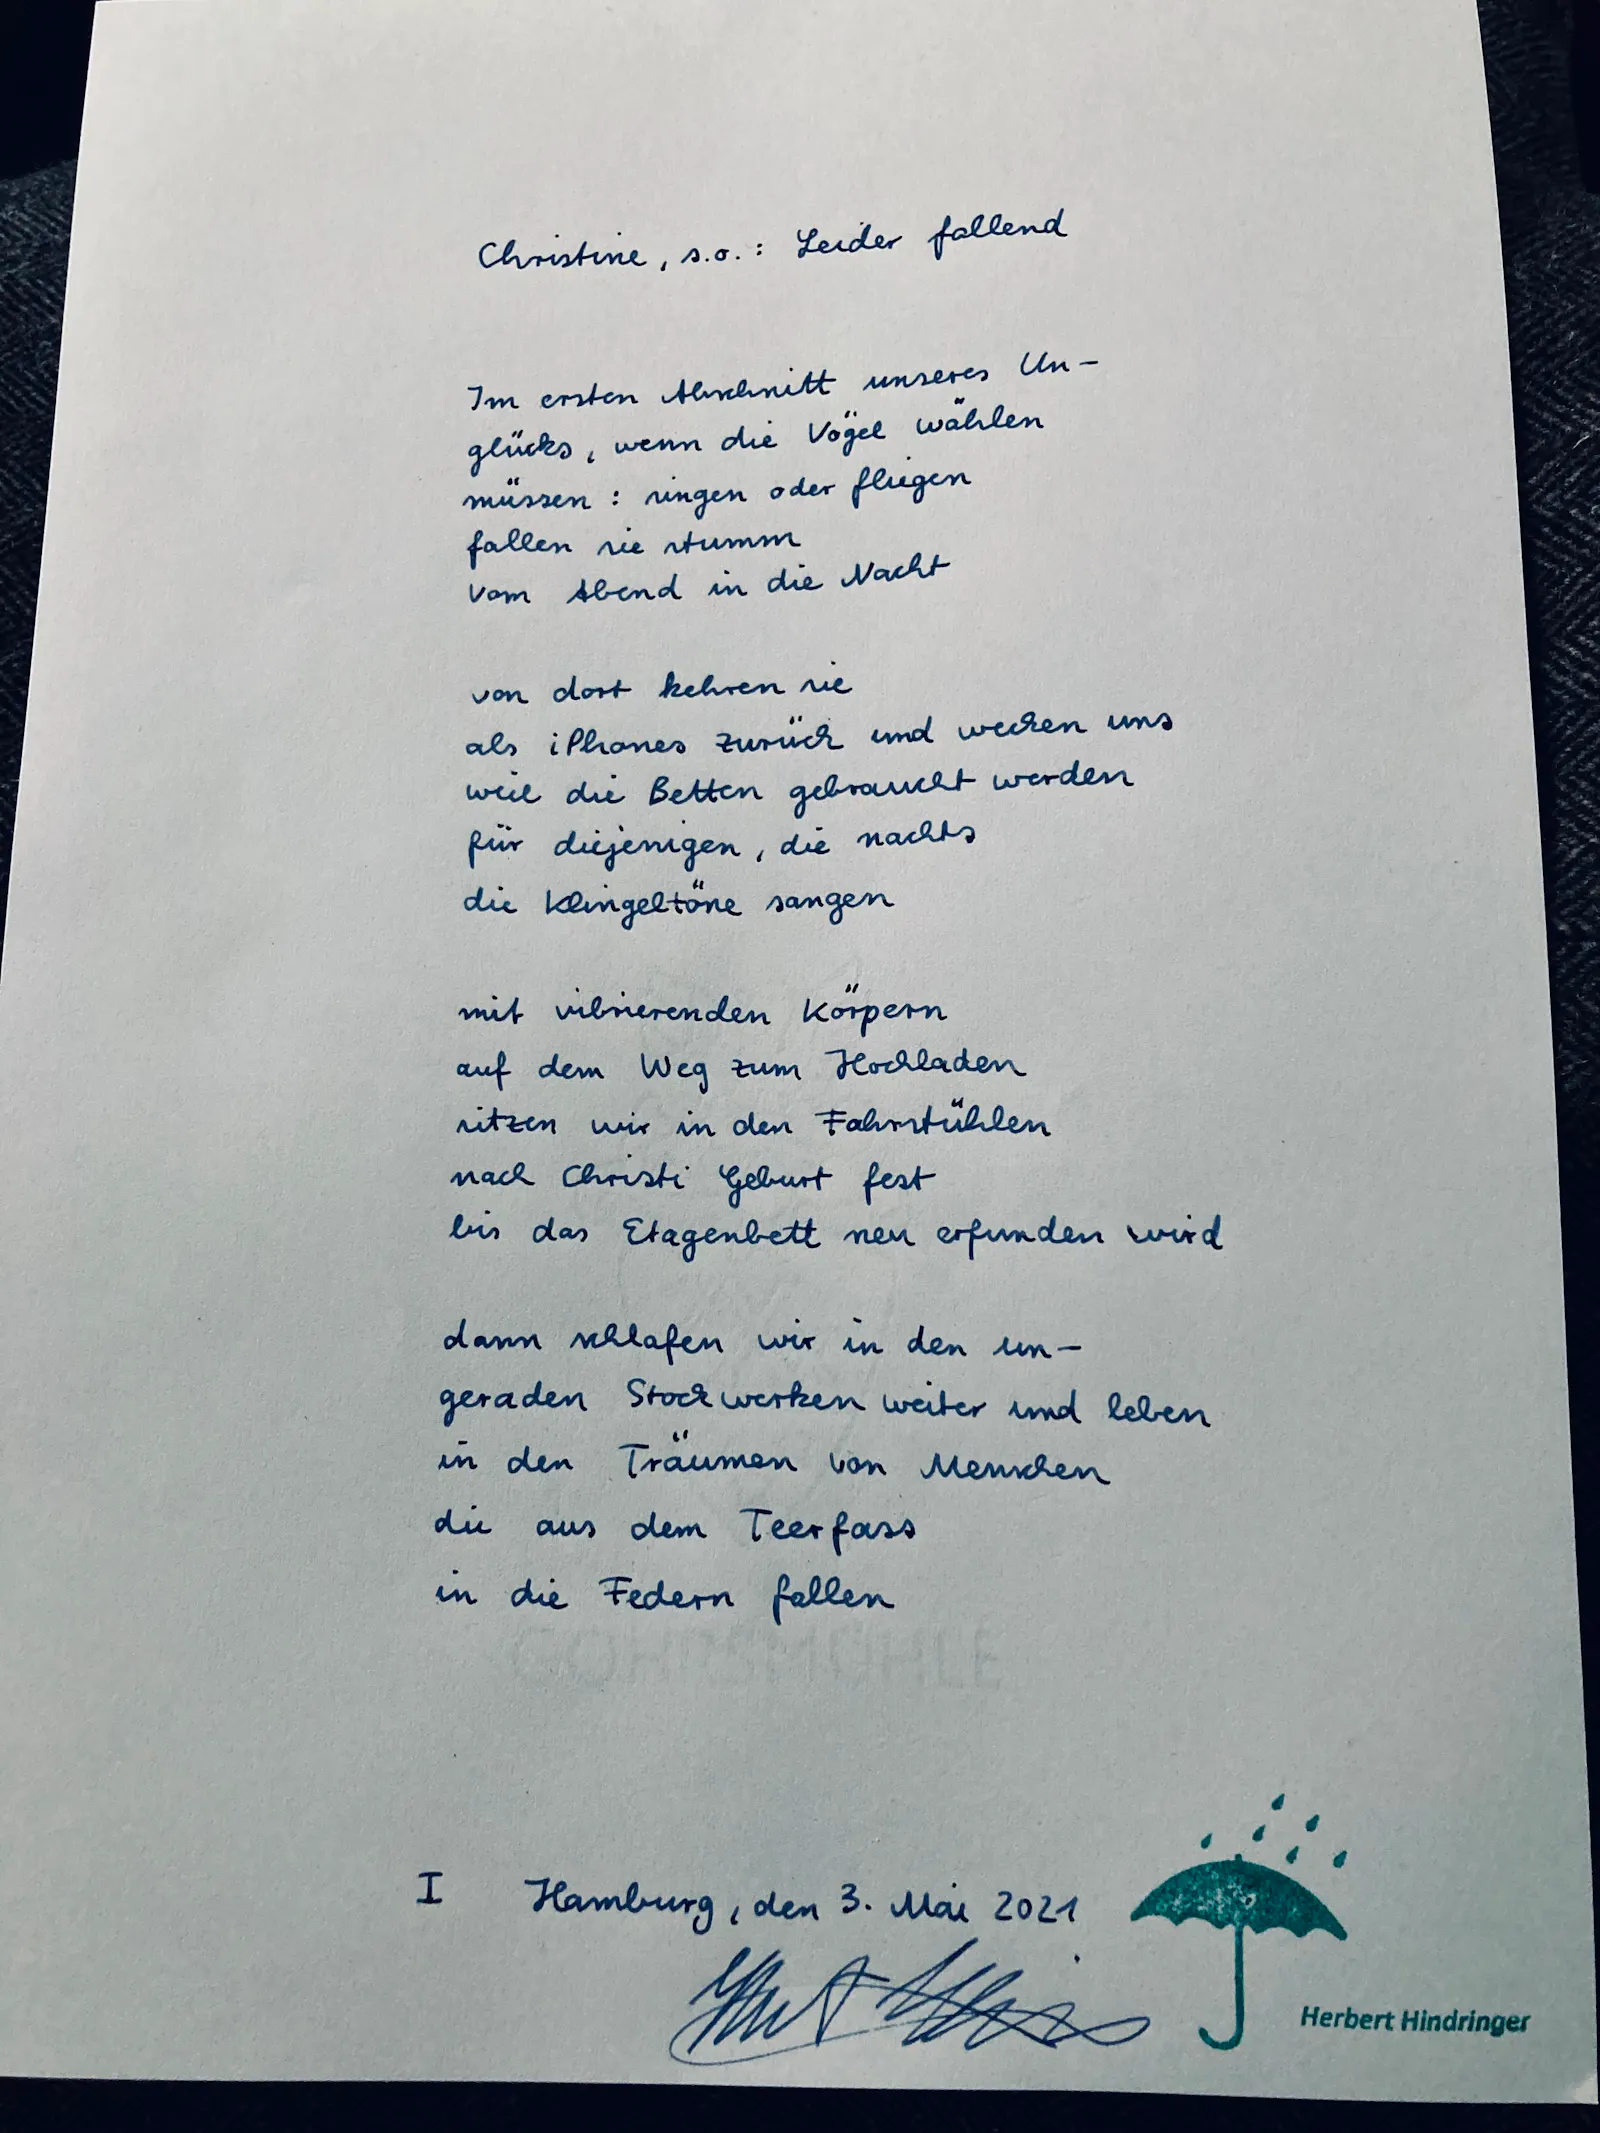 Christine, s.o.: Leider fallend
Im ersten Abschnitt unseres Un-
glücks, wenn die Vögel wählen
müssen: singen oder fliegen
fallen sie stumm
vom Abend in die Nacht
von dort kehren sie
als iPhones zurück und wecken uns
weil die Betten gebraucht werden
für diejenigen, die nachts
die Klingeltöne sangen
mit vibrierenden Körpern
auf dem Weg zum Hochladen
sitzen wir in den Fahrstühlen
nach Christi Geburt fest
bis das Etagenbett neu erfunden wird
dann schlafen wir in den un-
geraden Stockwerken weiter und leben
in den Träumen von Menschen
die aus dem Teerfass
in die Federn fallen
GOHRSMÜHLE
I Hamburg, den 3. Mai 2021
Herbert Hindringer